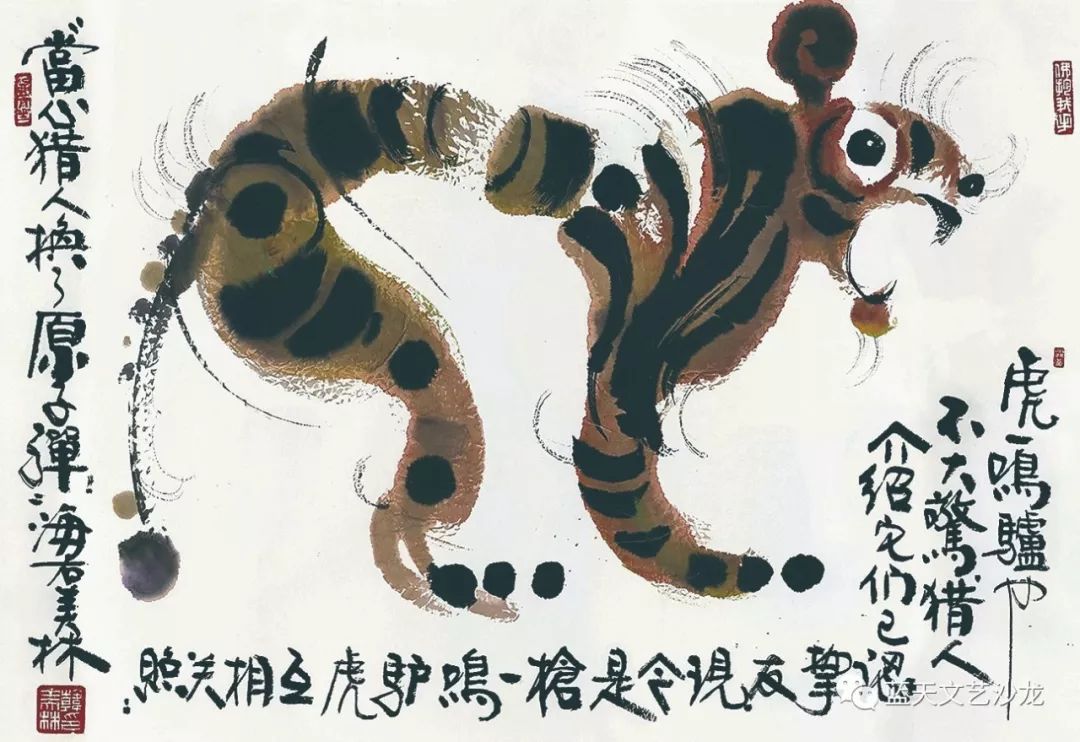 虎一鳴驢也
不大驚猎人
介绍它们已
挚友現今是槍一鳴驴虎互相关照
當心猎人換了原子彈 海 美林
蓝天文艺沙龙